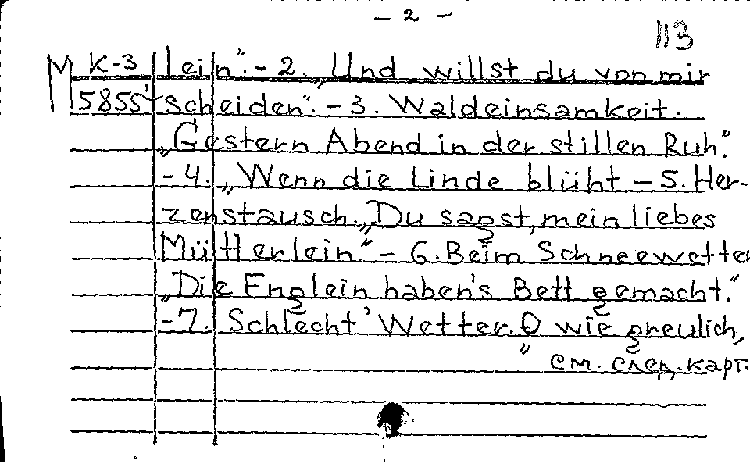 - 2 -
113
М К-3 lein". - 2. „Und willst du von mir
5855 scheiden". - 3. Waldeinsamkeit.
„Gestern Abend in der stillen Ruh".
- 4. „Wenn die Linde blüht - 5. Her-
zenstausch. „Du sagst, mein liebes
Mütterlein". - 6. Beim Schneewetter
„Die Englein haben's Bett gemacht."
- 7. Schlecht' Wetter. O wie greulich,
" см. след. карт.